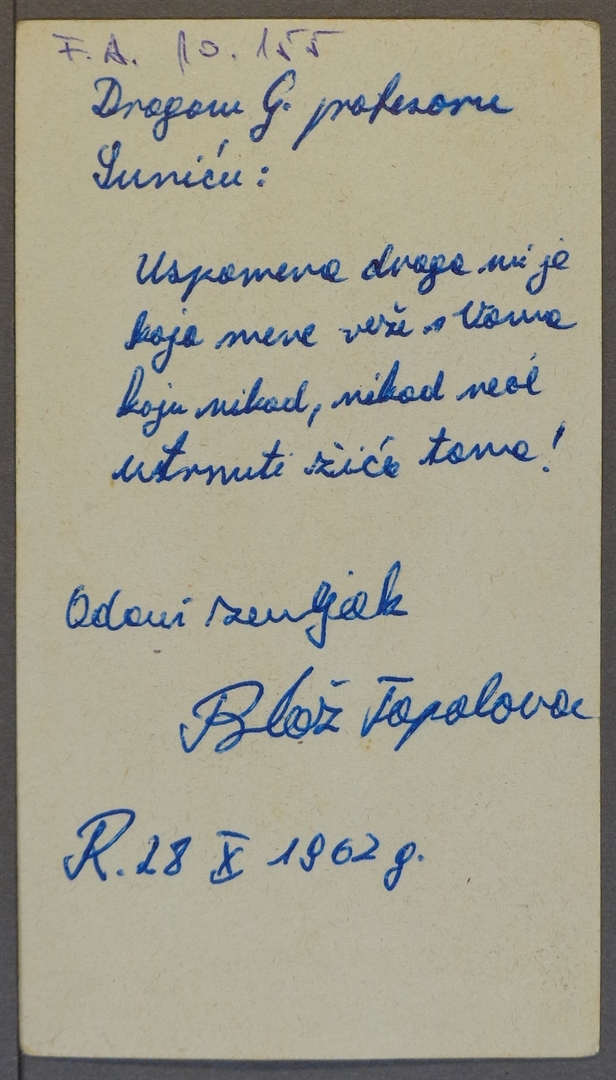 F. A. 10. 155
Dragom G. profesoru
Suniću:
Uspomena draga mi je
koja mene veže s Vama
koju nikad, nikad neće
utrnuti žića tama!
Odani zemljak
Blaž Topalovac
R. 28 X 1962 g.